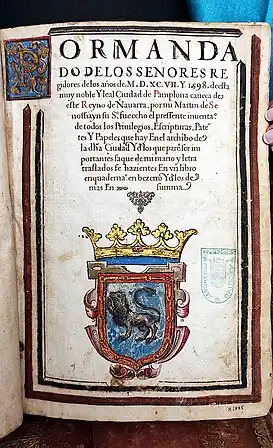 POR MANDA
DO DE LOS SENORES RE
gidores de los años de M.D.XC.VII.Y 1598. de esta
muy noble Y leal Ciudad de Pamplona caueca de
este Reyno de Nauarra, por mi Martin de Se
nossiayn su S.º fue echo el pressente inuenta.º
de todos los Priuilegios, Escripturas, Pate
tes Y Papeles que hay En el archibo de
la dha Ciudad Y d los que paresser im
portantes saque de mi mano y letra
traslados fe hazientes En vn libro
enquaderna.º en bezerro Y d los de
mas En summa